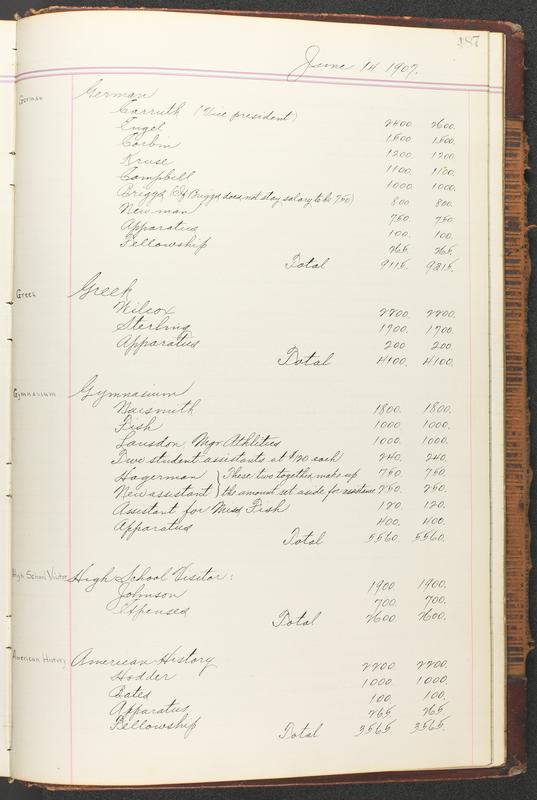 187
June 14 1907.
German
German
Carruth (Vice president) 2400. 2600.
Engel 1500 1500.
Corbin 1200 1200
Kruse 1100 1100.
Campbell 1000 1000.
Briggs (If Briggs does not stay salary to be 750) 800 800.
Newman 750. 750
Apparatus 100. 100.
Fellowship 265 265.
Total 9115. 9315.
Greek
Greek
Wilcox 2200. 2200.
Sterling 1700. 1700.
Apparatus 200 200.
Total 4100. 4100.
Gymnasium
Gymnasium
Naismith 1800. 1800.
Fish 1000 1000.
Lansdon, Mgr. Athletics 1000. 1000.
Two student assistants at $120 each 240. 240.
Hagerman } These two together make up 750. 750.
New assistant } the amount set aside for assistance 250. 250.
Assistant for Miss Fish 120. 120.
Apparatus 400. 400.
Total 5560 5560.
High School Visitor
High School Visitor:
Johnson 1900. 1900.
Expenses 700. 700.
Total 2600. 2600.
American History
American History
Hodder 2200 2200.
Bates 1000. 1000.
Apparatus 100. 100.
Fellowship 265. 265
Total 3565 3565.